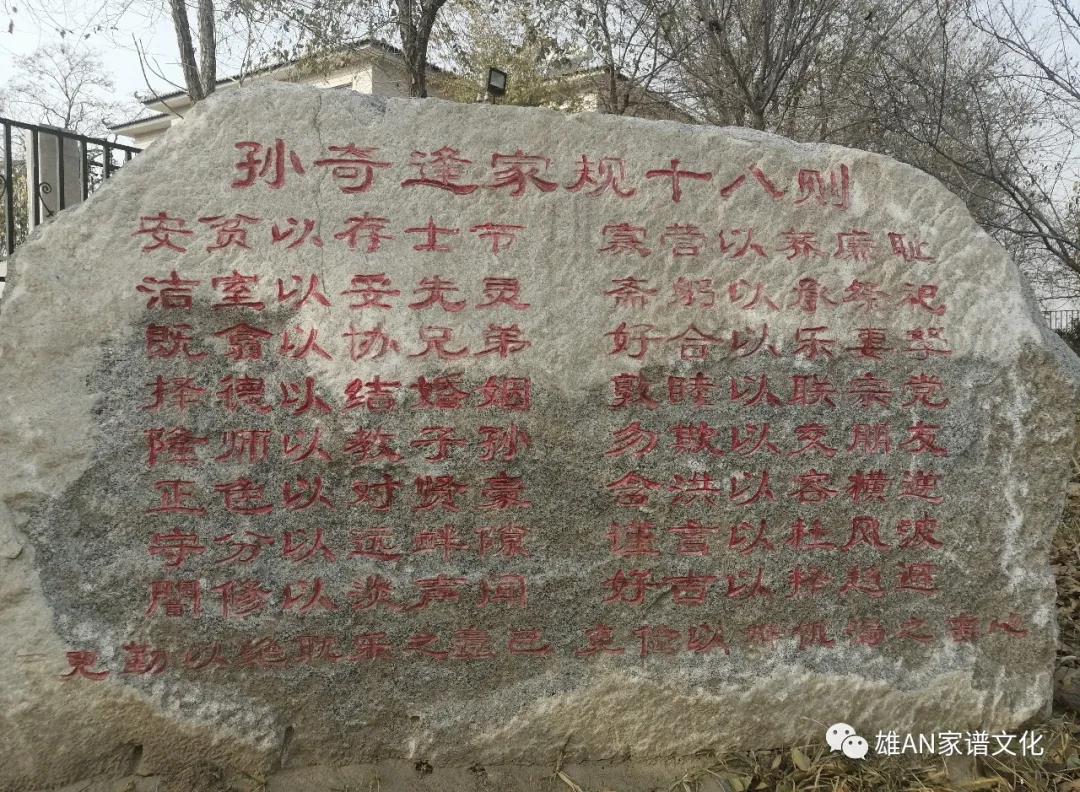 孙奇逢家规十八则
安贫以存士节 寡营以养廉耻
洁室以妥先灵 斋躬以承祭祀
既翕以协兄弟 好合以乐妻孥
择德以结婚姻 敦睦以联宗党
隆师以教子孙 勿欺以交朋友
正色以对贤豪 含洪以容横逆
守分以远衅隙 谨言以杜风波
闇修以淡声闻 好古以择趋避
克勤以绝耽乐之蠹己 克俭以辨饥渴之害心
雄AN家谱文化